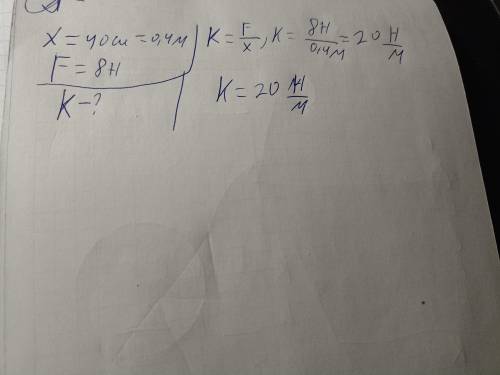 x = 40 см = 0,4 м
F = 8 Н
K - ?
K = F/x, K = 8Н/0,4м = 20 Н/м
K = 20 Н/м